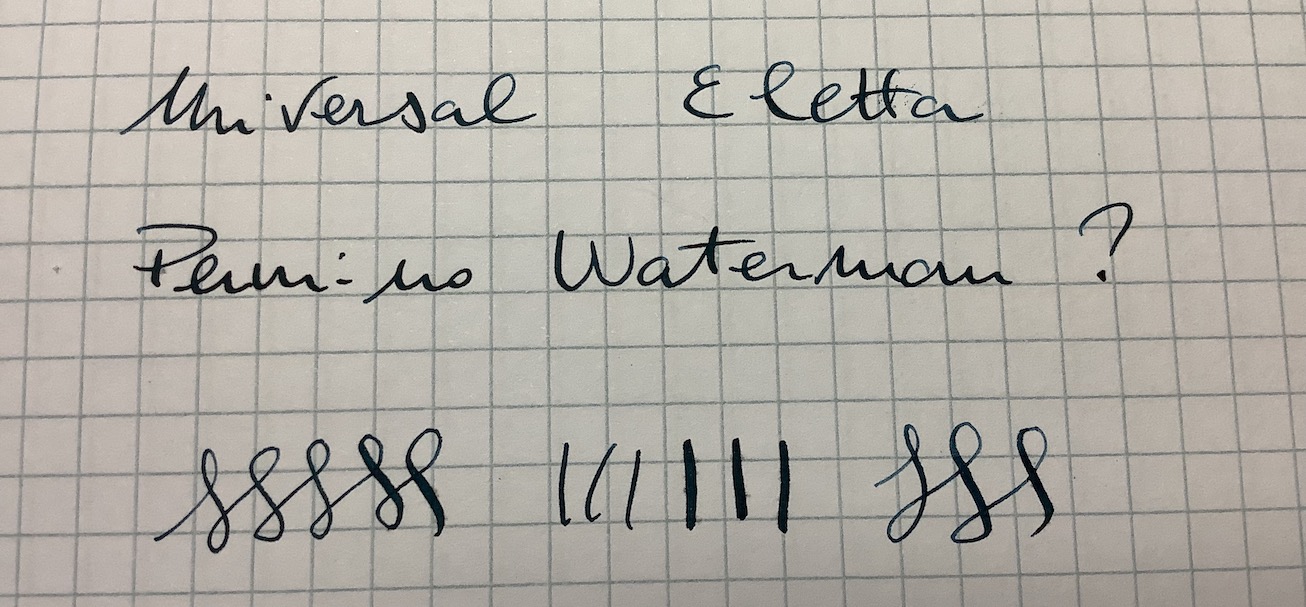 Universal Eletta
Pennino Waterman ?